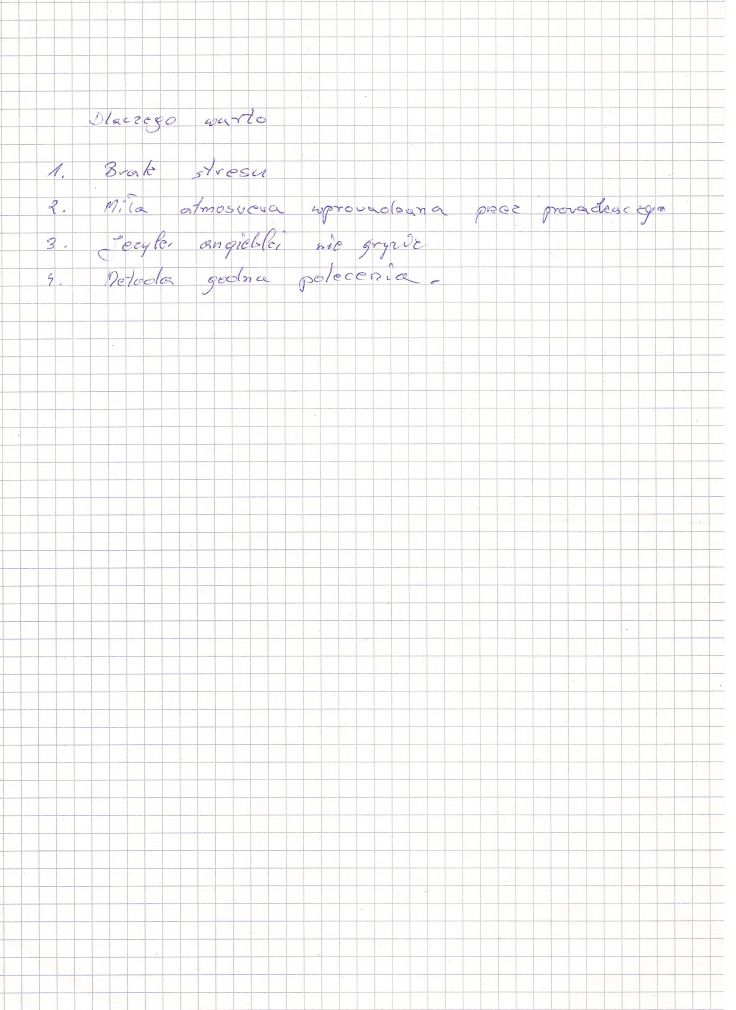 Dlaczego warto
1. Brak stresu
2. Miła atmosvera wprowadzana przez prowadzącego
3. Język angielski nie gryzie
4. Metoda godna polecenia.